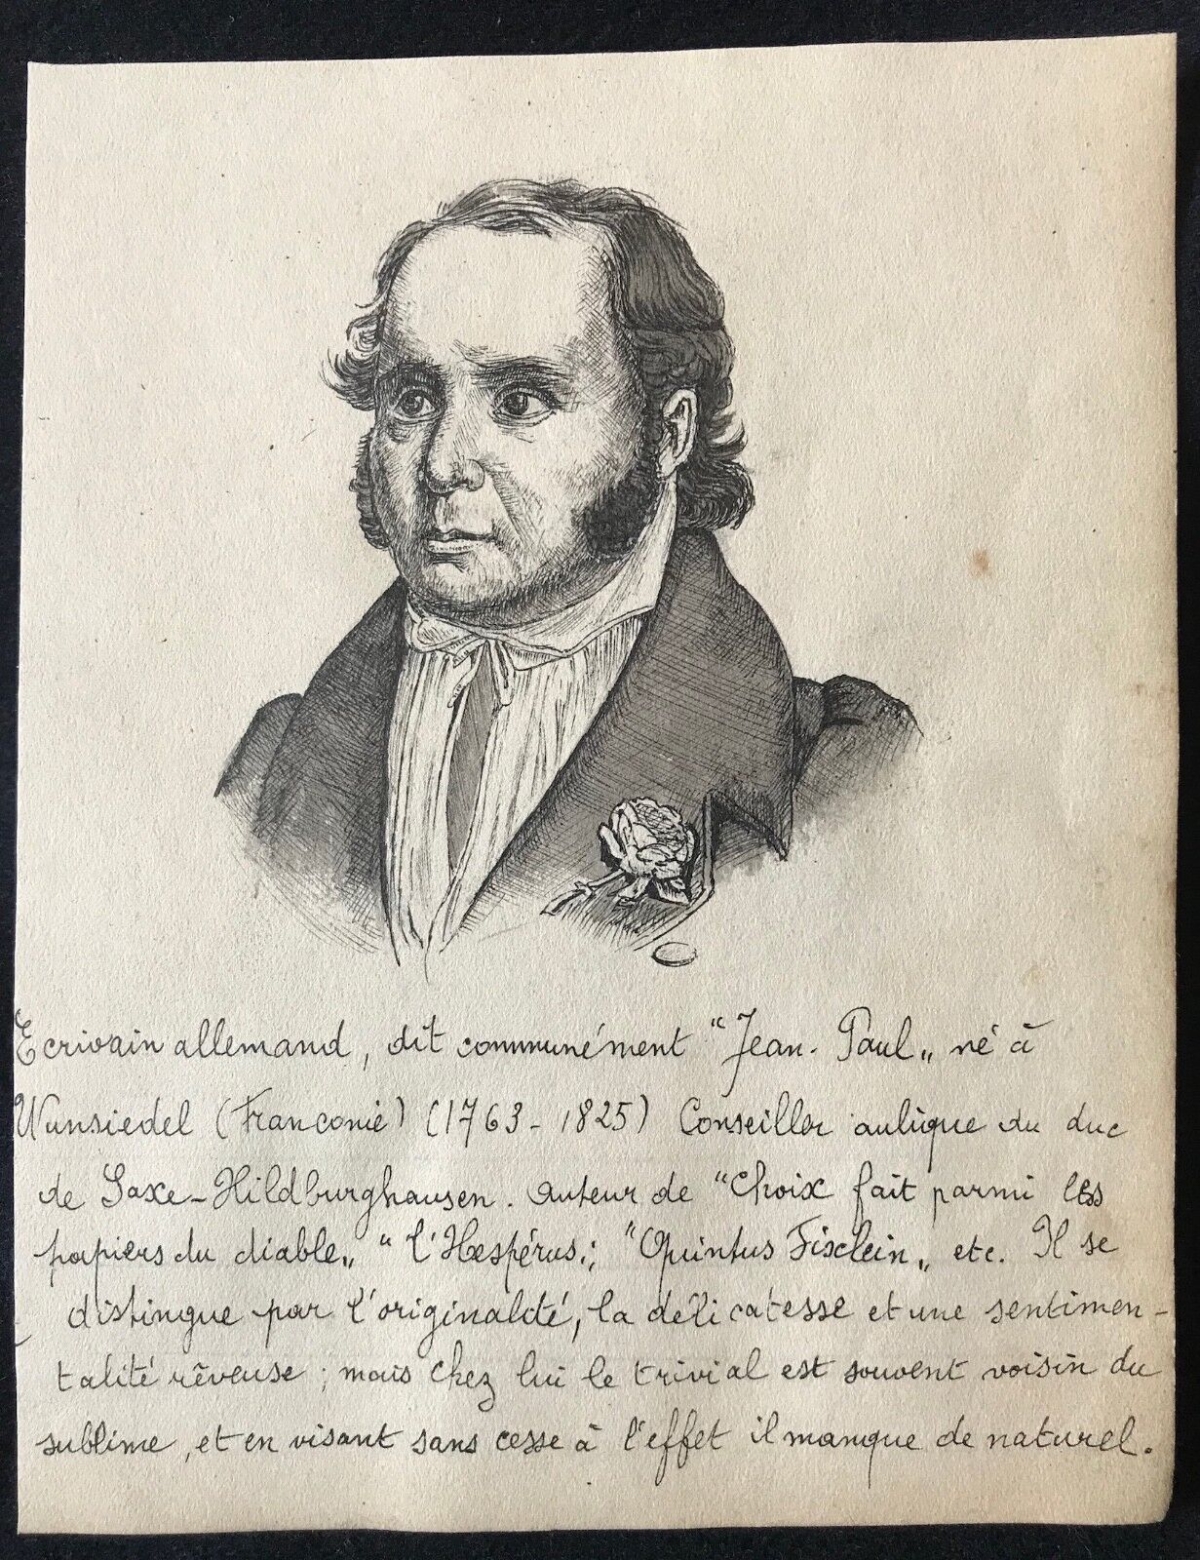 Ecrivain allemand, dit communément “Jean-Paul„ né à
Wunsiedel (Franconie) (1763-1825) Conseiller aulique du duc
de Saxe-Hildburghausen. auteur de “Choix fait parmi les
papiers du diable„ “l'Hespérus„; “Quintus Fixlein„ etc. Il se
distingue par l'originalité, la délicatesse et une sentimen-
talité rêveuse; mais chez lui le trivial est souvent voisin du
sublime, et en visant sans cesse à l'effet il manque de naturel.